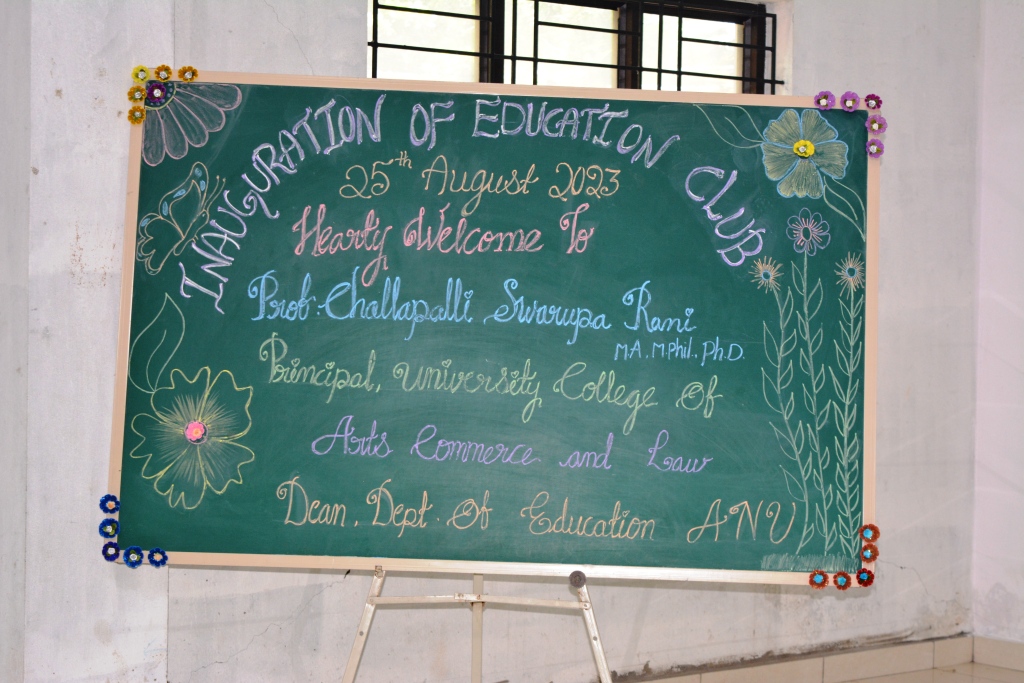 INAUGURATION OF EDUCATION CLUB
25th August 2023
Hearty Welcome To
Prof. Challapalli Swarupa Rani
M.A., M.Phil., Ph.D.
Principal, University College Of
Arts Commerce and Law
Dean, Dept. Of Education ANU